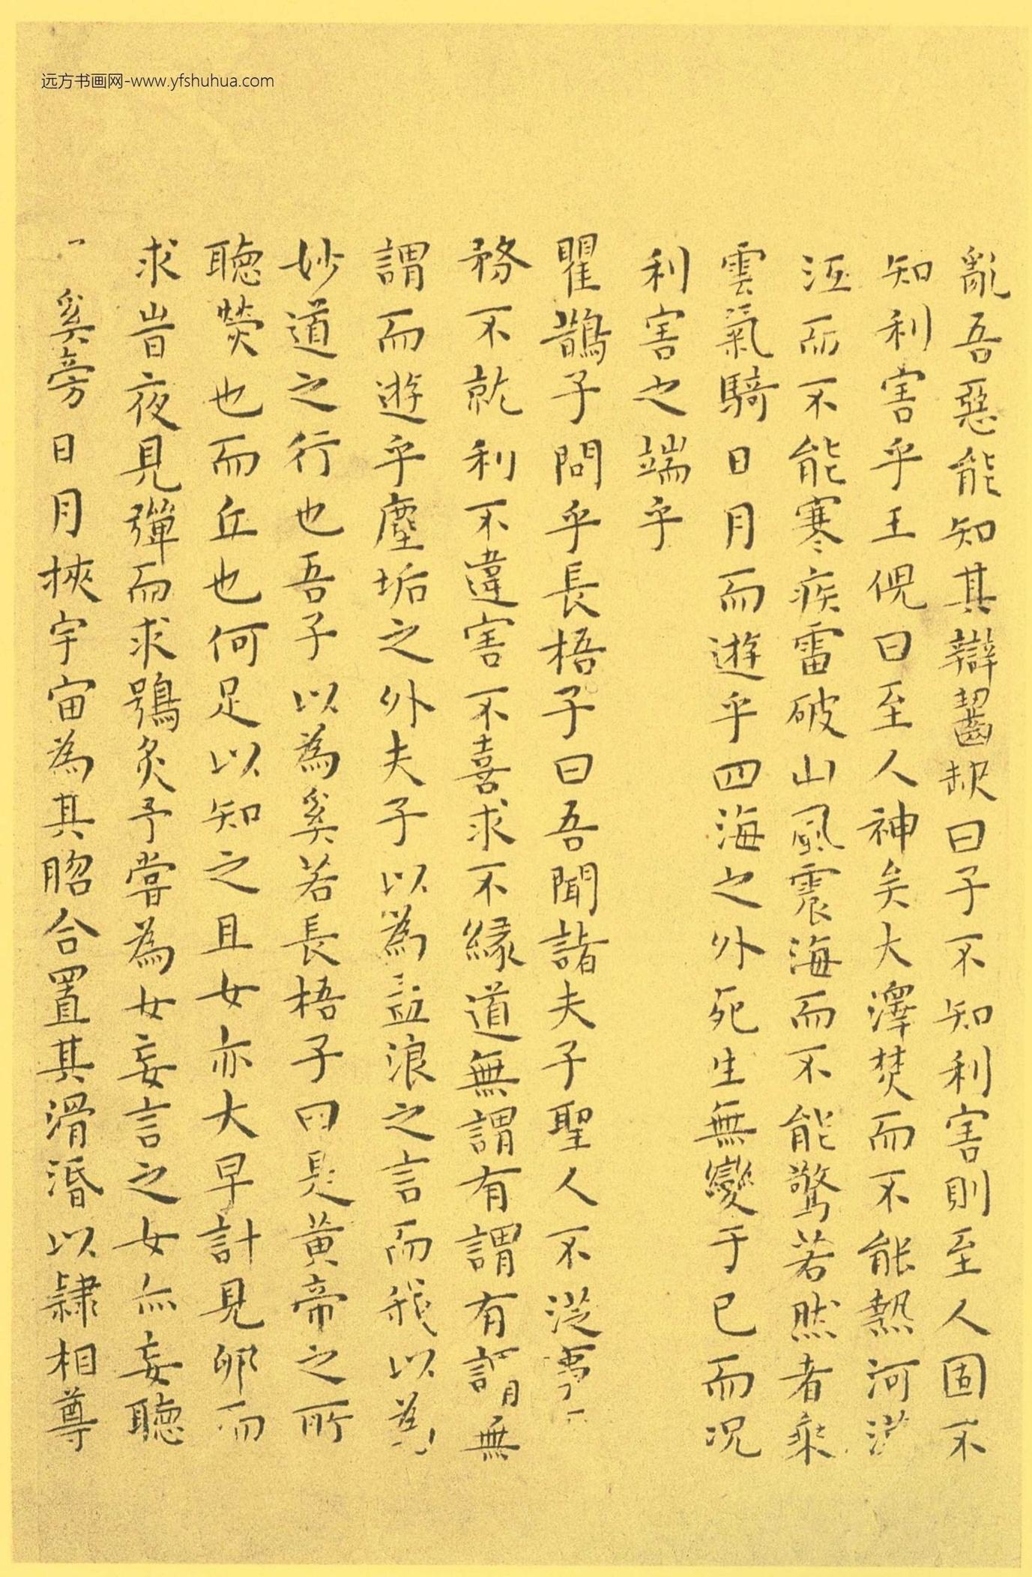 远方书画网-www.yfshuhua.com
亂吾惡能知其辯齧缺曰子不知利害則至人固不
知利害乎王倪曰至人神矣大澤焚而不能熱河漢
沍而不能寒疾雷破山風震海而不能驚若然者乘
雲氣騎日月而遊乎四海之外死生無變于已而況
利害之端乎
瞿鵲子問乎長梧子曰吾聞諸夫子聖人不從事
務不就利不違害不喜求不緣道無謂有謂有謂無
謂而遊乎塵垢之外夫子以為孟浪之言而我以為
妙道之行也吾子以為奚若長梧子曰是黃帝之所
聽熒也而丘也何足以知之且女亦大早計見卵而
求旹夜見彈而求鴞炙予嘗為女妄言之女亦妄聽
奚旁日月挾宇宙為其脗合置其滑湣以隸相尊